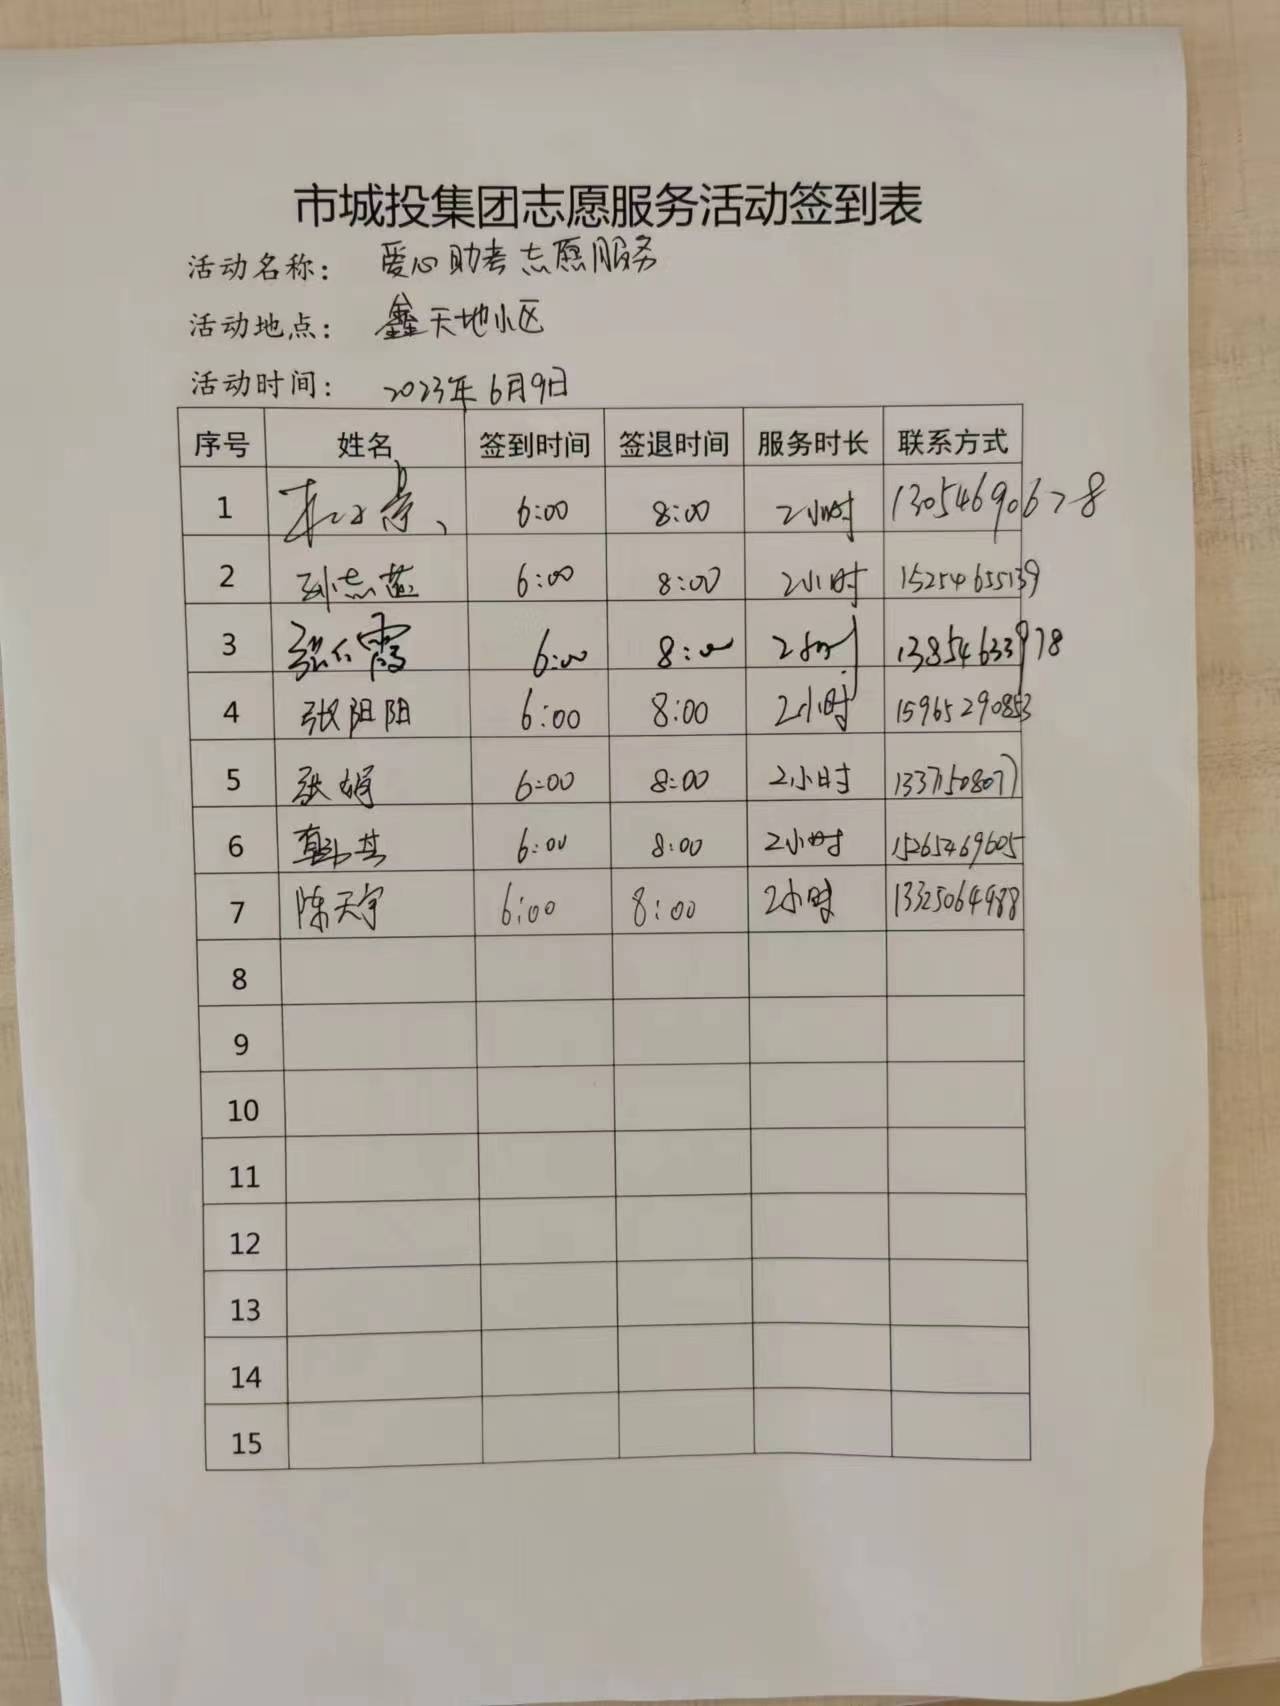 市城投集团志愿服务活动签到表
活动名称： 爱心助考志愿服务
活动地点： 鑫天地小区
活动时间： 2023年6月9日
序号 姓名 签到时间 签退时间 服务时长 联系方式
1 6:00 8:00 2小时 13054690678
2 孙志燕 6:00 8:00 2小时 15254655139
3 张仁霞 6:00 8:00 2小时 13854633978
4 张阳阳 6:00 8:00 2小时 15965290853
5 张娟 6:00 8:00 2小时 13371508077
6 6:00 8:00 2小时 15265469605
7 陈天宇 6:00 8:00 2小时 13325064988
8
9
10
11
12
13
14
15